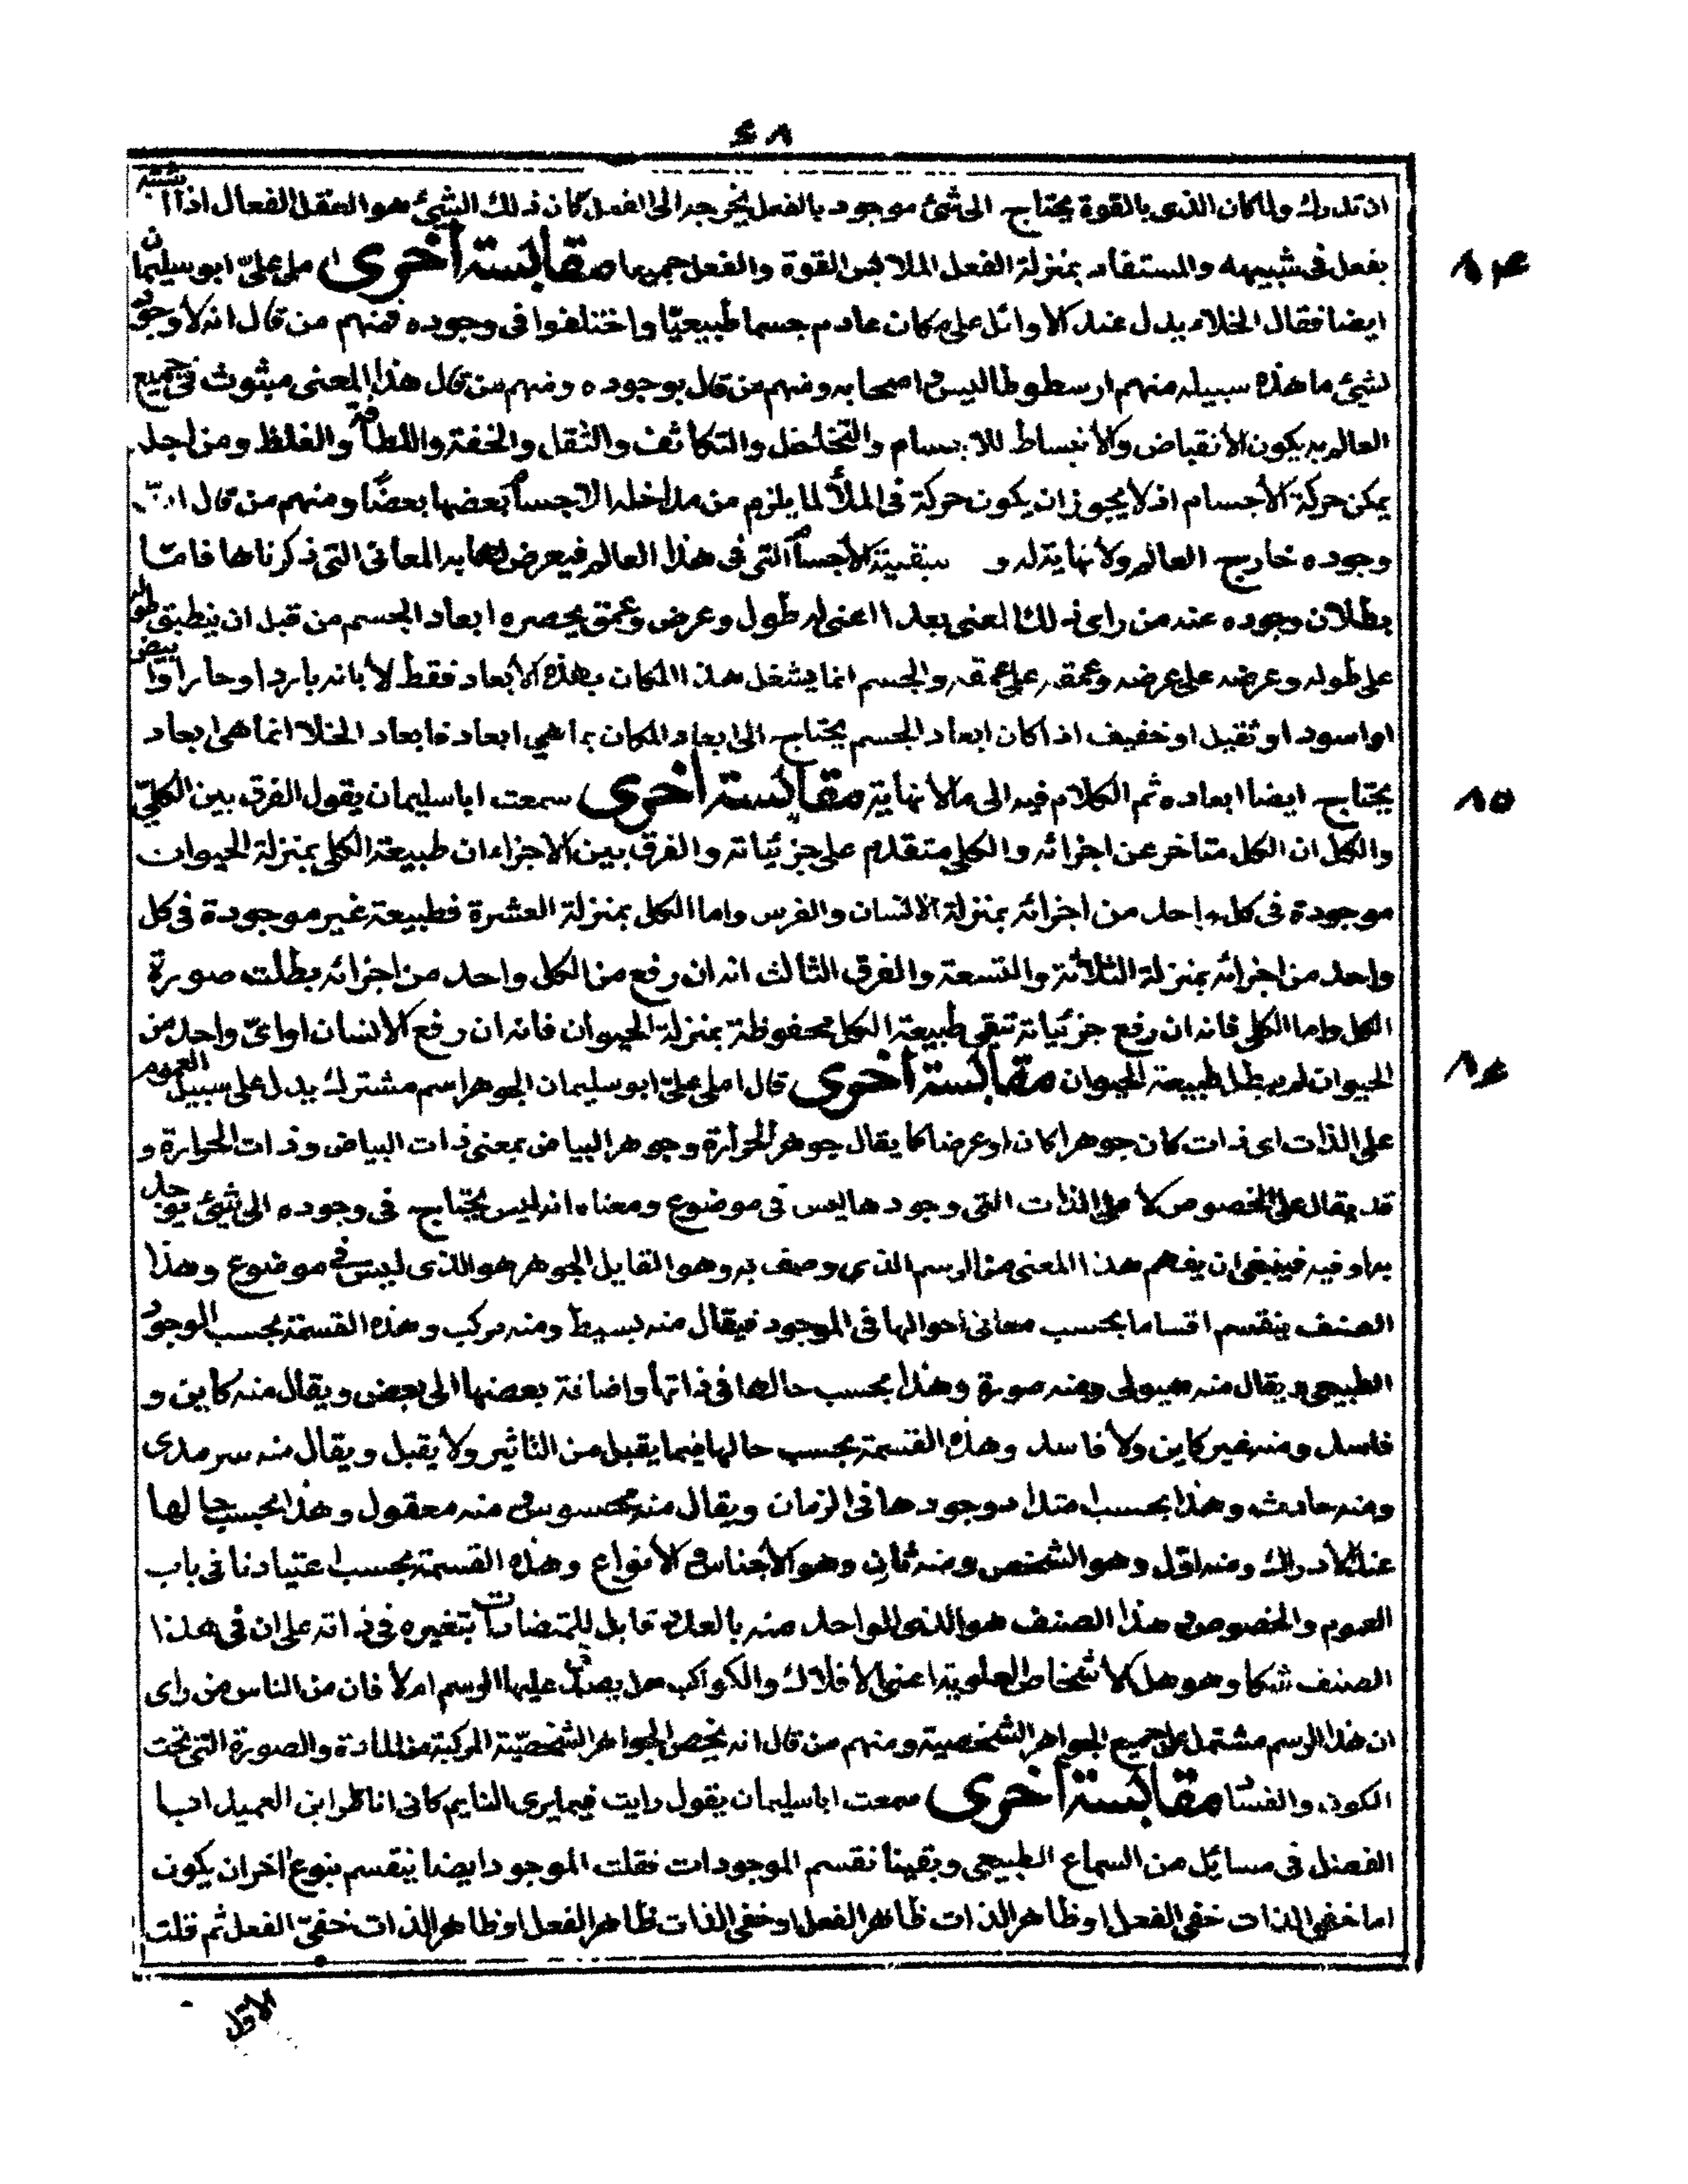 ٨٤
ان تدرك ولما كان الذى بالقوة يحتاج الى شئ موجود بالفعل يخرجه الى الفعل كان ذلك الشئ هو العقل الفعال اذا الشئ
يفعل فى شبيهه والمستفاد بمنزلة الفعل الملابس القوة والفعل جميعا مقابسة أخرى املى علىّ ابو سليمان
ايضا فقال الخلاء يدل عند الأوائل على مكان عادم جسما طبيعيّا واختلفوا فى وجوده فمنهم من قال انه لا وجود
لشئ ما هذه سبيله منهم ارسطوطاليس واصحابه ومنهم من قال بوجوده ومنهم من قال هذا المعنى مبثوث فى جميع
العالم به يكون الأنقباض والأنبساط للاجسام والتخلخل والتكاثف والثقل والخفة واللطافة والغلظ ومن اجله
يمكن حركة الأجسام اذ لا يجوز ان يكون حركة فى الملأ لما يلزم من مداخله الاجسام بعضها بعضًا ومنهم من قال انّ
وجوده خارج العالم ولا نهاية له و سبقية الأجسام التى فى هذا العالم فيعرض لها به المعانى التى ذكرناها فامّا
بطلان وجوده عند من راى ذلك لعنى بعدا اعنى له طول وعرض وعمق يحصره ابعاد الجسم من قبل ان ينطبق طوله
على طوله وعرضه على عرضه وعمقه على عمقه والجسم انما يشغل هذا المكان بهذه الأبعاد فقط لا بانه بارد او حار او ابيض
او اسود او ثقيل او خفيف اذا كان ابعاد الجسم يحتاج الى ابعاد المكان بما هى ابعاد فابعاد الخلا انما هى ابعاد
يحتاج ايضا ابعاده ثم الكلام فيه الى مالا نهاية مقابسة أخرى سمعت ابا سليمان يقول الفرق بين الكلىّ
٨٥
والكل ان الكل متأخر عن اجزائه والكلى متقدم على جزئياته والفرق بين الاجزاء ان طبيعة الكلى بمنزلة الحيوان
موجودة فى كل واحد من اجزائه بمنزلة الانسان والفرس واما الكل بمنزلة العشرة فطبيعة غير موجودة فى كل
واحد من اجزائه بمنزلة الثلاثة والتسعة والفرق الثالث انه ان رفع من الكل واحد من اجزائه بطلت صورة
الكل واما الكلى فانه ان رفع جزئياته تبقى طبيعة الكل محفوظة بمنزلة الحيوان فانه ان رفع الأنسان او اىّ واحد من
الحيوان لم يبطل طبيعة الحيوان مقابسة أخرى قال املى علىّ ابو سليمان الجوهر اسم مشترك يدل على سبيل العموم
على الذات اى ذات كان جوهرا كان او عرضا كما يقال جوهر الحرارة وجوهر البياض بمعنى ذات البياض وذات الحرارة و
قد يقال على الخصوص لا على الذات التى وجودها ليس فى موضوع ومعناه انه ليس يحتاج فى وجوده الى شئ يوجد
به او فيه فينبغى ان يفهم هذا المعنى من الرسم الذى وصف به وهو القايل الجوهر هو الذى ليس فى موضوع وهذا
الصنف ينقسم اقساما بحسب معانى احوالها فى الموجود فيقال منه بسيط ومنه مركب وهذه القسمة بحسب الوجود
الطبيعى ويقال منه هيولى ومنه صورة وهذا بحسب حالها فى ذاتها واضافة بعضها الى بعض ويقال منه كاين و
فاسد ومنه غير كاين ولا فاسد وهذه القسمة بحسب حالها فيما يقبل من التاثير ولا يقبل ويقال منه سرمدى
ومنه حادث وهذا بحسب امتداد وجودها فى الزمان ويقال منه محسوس و منه معقول وهذا بحسب حالها
عند الأدراك ومنه اوّل وهو الشخص ومنه ثان وهو الأجناس و الأنواع وهذه القسمة بحسب اعتيادنا فى باب
العموم والخصوص و هذا الصنف هو الذى الواحد منه بالعدد قابل للمتضادات بتغيره فى ذاته على ان فى هذا
الصنف شكا وهو هل الأشخاص العلوية اعنى الأفلاك والكواكب هل يصدق عليها الرسم ام لا فان من الناس من راى
ان هذا الرسم مشتمل على جميع الجواهر الشخصية ومنهم من قال انه يخص الجواهر الشخصيّة المركبة من المادة والصورة التى تحت
الكون والفساد مقابسة أخرى سمعت ابا سليمان يقول رايت فيما يرى النايم كانى اناظر ابن العميد ابا
الفضل فى مسايل من السماع الطبيعى وبقينا نقسم الموجودات فقلت الموجود ايضا ينقسم بنوع اخر ان يكون
اما خفى الذات خفى الفعل او ظاهر الذات ظاهر الفعل او خفى الذات ظاهر الفعل او ظاهر الذات خفىّ الفعل ثم قلت
الأول